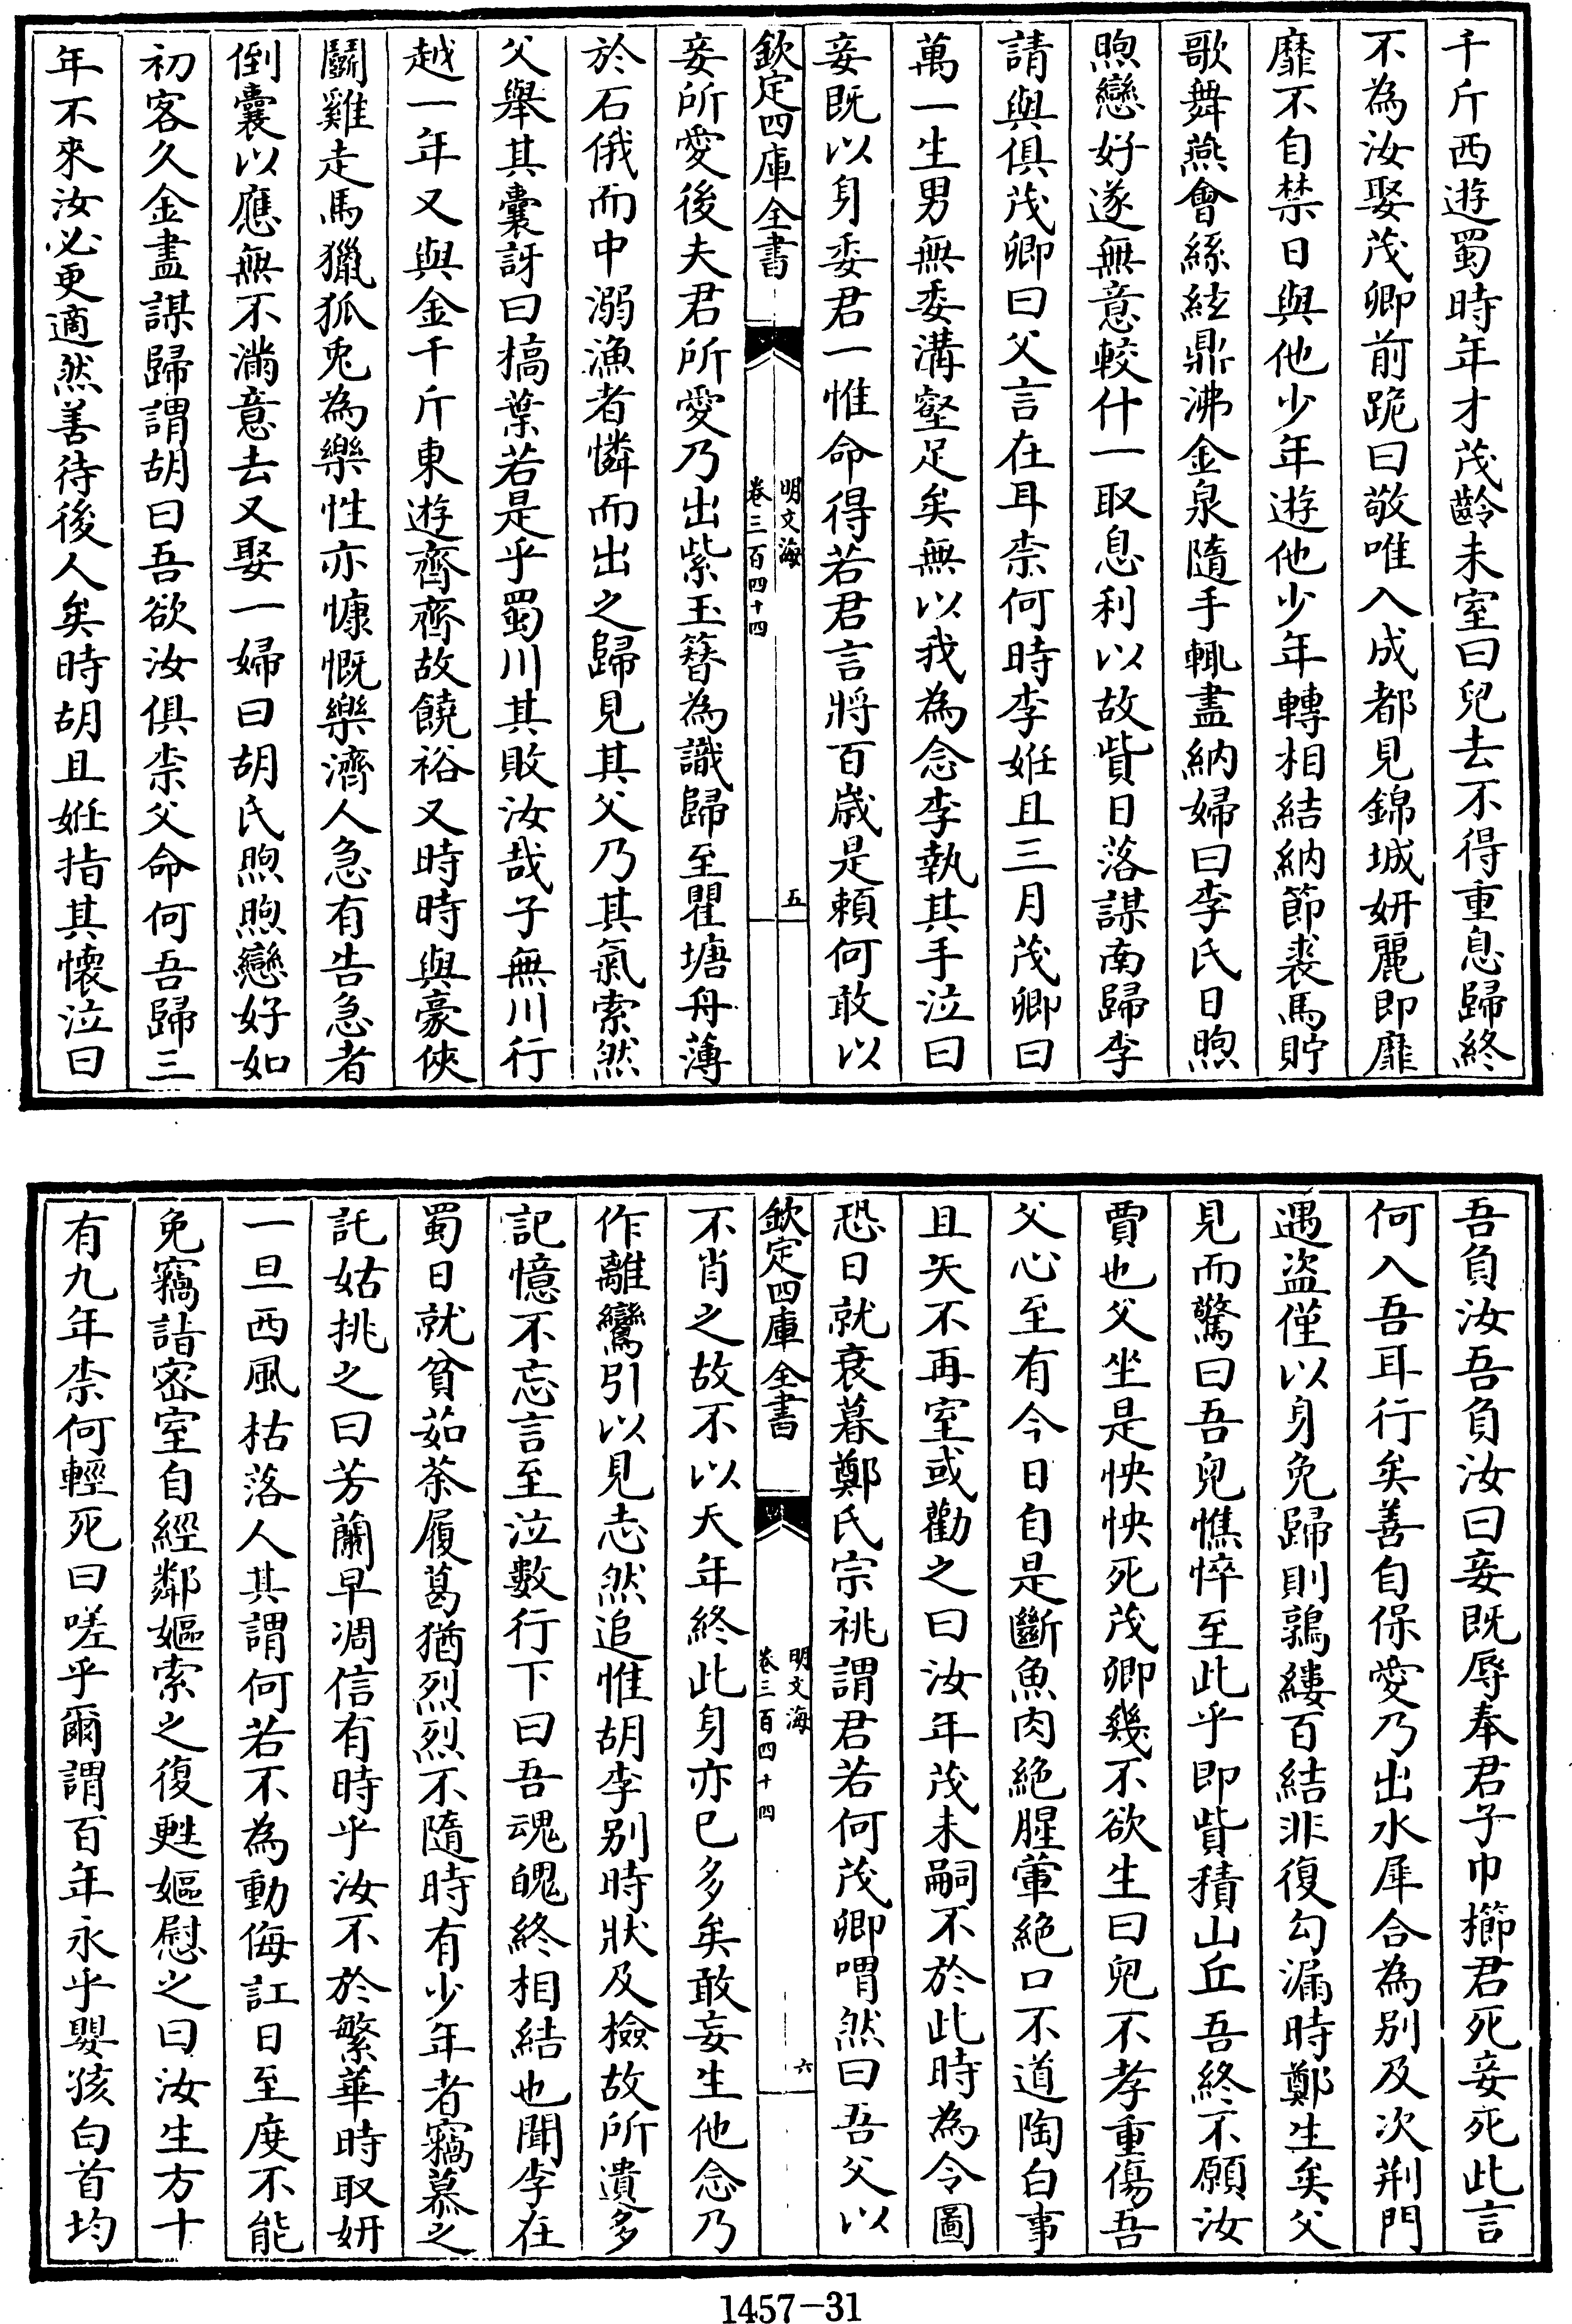 千斤西遊蜀時年才茂齡未室曰兒去不得重息歸終
不為汝娶茂卿前跪曰敬唯入成都見錦城妍麗即靡
靡不自禁日與他少年遊他少年轉相結納節裘馬貯
歌舞燕會絲絃鼎沸金泉隨手輒盡納婦曰李氏日煦
煦戀好遂無意較什一取息利以故貲日落謀南歸李
請與俱茂卿曰父言在耳柰何時李姙且三月茂卿曰
萬一生男無委溝壑足矣無以我為念李執其手泣曰
妾既以身委君一惟命得若君言將百歲是賴何敢以
欽定四庫全書
明文海
卷三百四十四
五
妾所愛後夫君所愛乃出紫玉簪為識歸至瞿塘舟薄
於石俄而中溺漁者憐而出之歸見其父乃其氣索然
父舉其囊訝曰槁葉若是乎蜀川其敗汝哉子無川行
越一年又與金千斤東遊齊齊故饒裕又時時與豪俠
鬭雞走馬獵狐兎為樂性亦慷慨樂濟人急有告急者
倒囊以應無不滿意去又娶一婦曰胡氏煦煦戀好如
初客久金盡謀歸謂胡曰吾欲汝俱柰父命何吾歸三
年不來汝必更適然善待後人矣時胡且姙指其懷泣曰
吾負汝吾負汝曰妾既辱奉君子巾櫛君死妾死此言
何入吾耳行矣善自保愛乃出水犀合為別及次荆門
遇盜僅以身免歸則鶉縷百結非復勾漏時鄭生矣父
見而驚曰吾兒憔悴至此乎即貲積山丘吾終不願汝
賈也父坐是怏怏死茂卿幾不欲生曰兒不孝重傷吾
父心至有今日自是斷魚肉絶腥葷絶口不道陶白事
且矢不再室或勸之曰汝年茂未嗣不於此時為令圖
恐日就衰暮鄭氏宗祧謂君若何茂卿喟然曰吾父以
欽定四庫全書
明文海
卷三百四十四
六
不肖之故不以天年終此身亦已多矣敢妄生他念乃
作離鸞引以見志然追惟胡李别時狀及檢故所遺多
記憶不忘言至泣數行下曰吾魂魄終相結也聞李在
蜀日就貧茹荼履葛猶烈烈不隨時有少年者竊慕之
託姑挑之曰芳蘭早凋信有時乎汝不於繁華時取妍
一旦西風枯落人其謂何若不為動侮訌日至度不能
免竊詣密室自經鄰嫗索之復甦嫗慰之曰汝生方十
有九年柰何輕死曰嗟乎爾謂百年永乎嬰孩白首均
1457-31